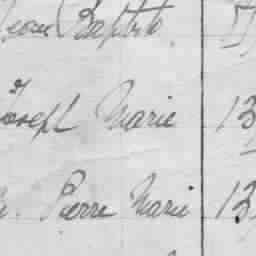 Jean Baptist
Joseph Marie 13
Pierre Marie 13